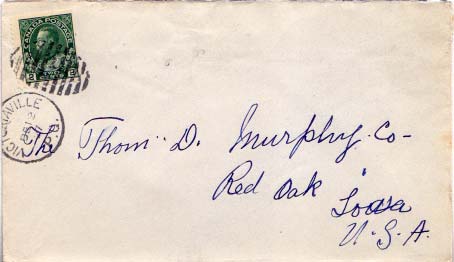 CANADA POSTAGE
2 TWO 2
VICTORIAVILLE
P.Q.
The Thom. D. Murphy Co-
Red Oak
Iowa
U.S.A.